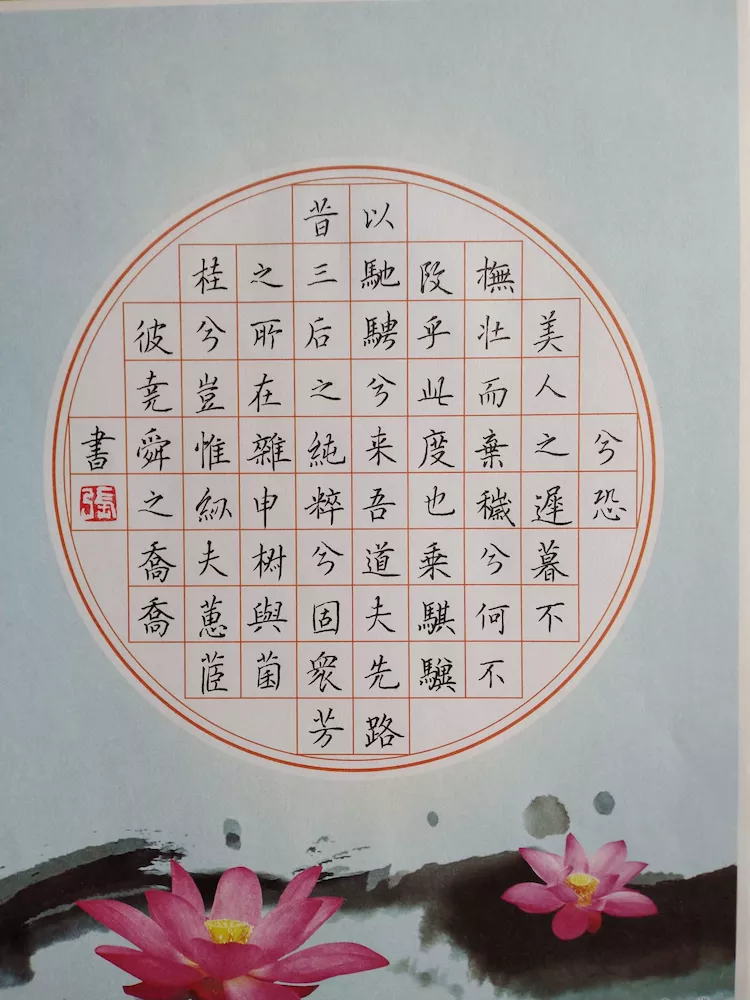 兮恐
美人之遲暮不
撫壯而棄穢兮何不
改乎此度也乗騏驥
以馳騁兮来吾道夫先路
昔三后之純粹兮固衆芳
之所在雜申椒與菌
桂兮豈惟紉夫蕙茝
彼堯舜之喬喬
書
張